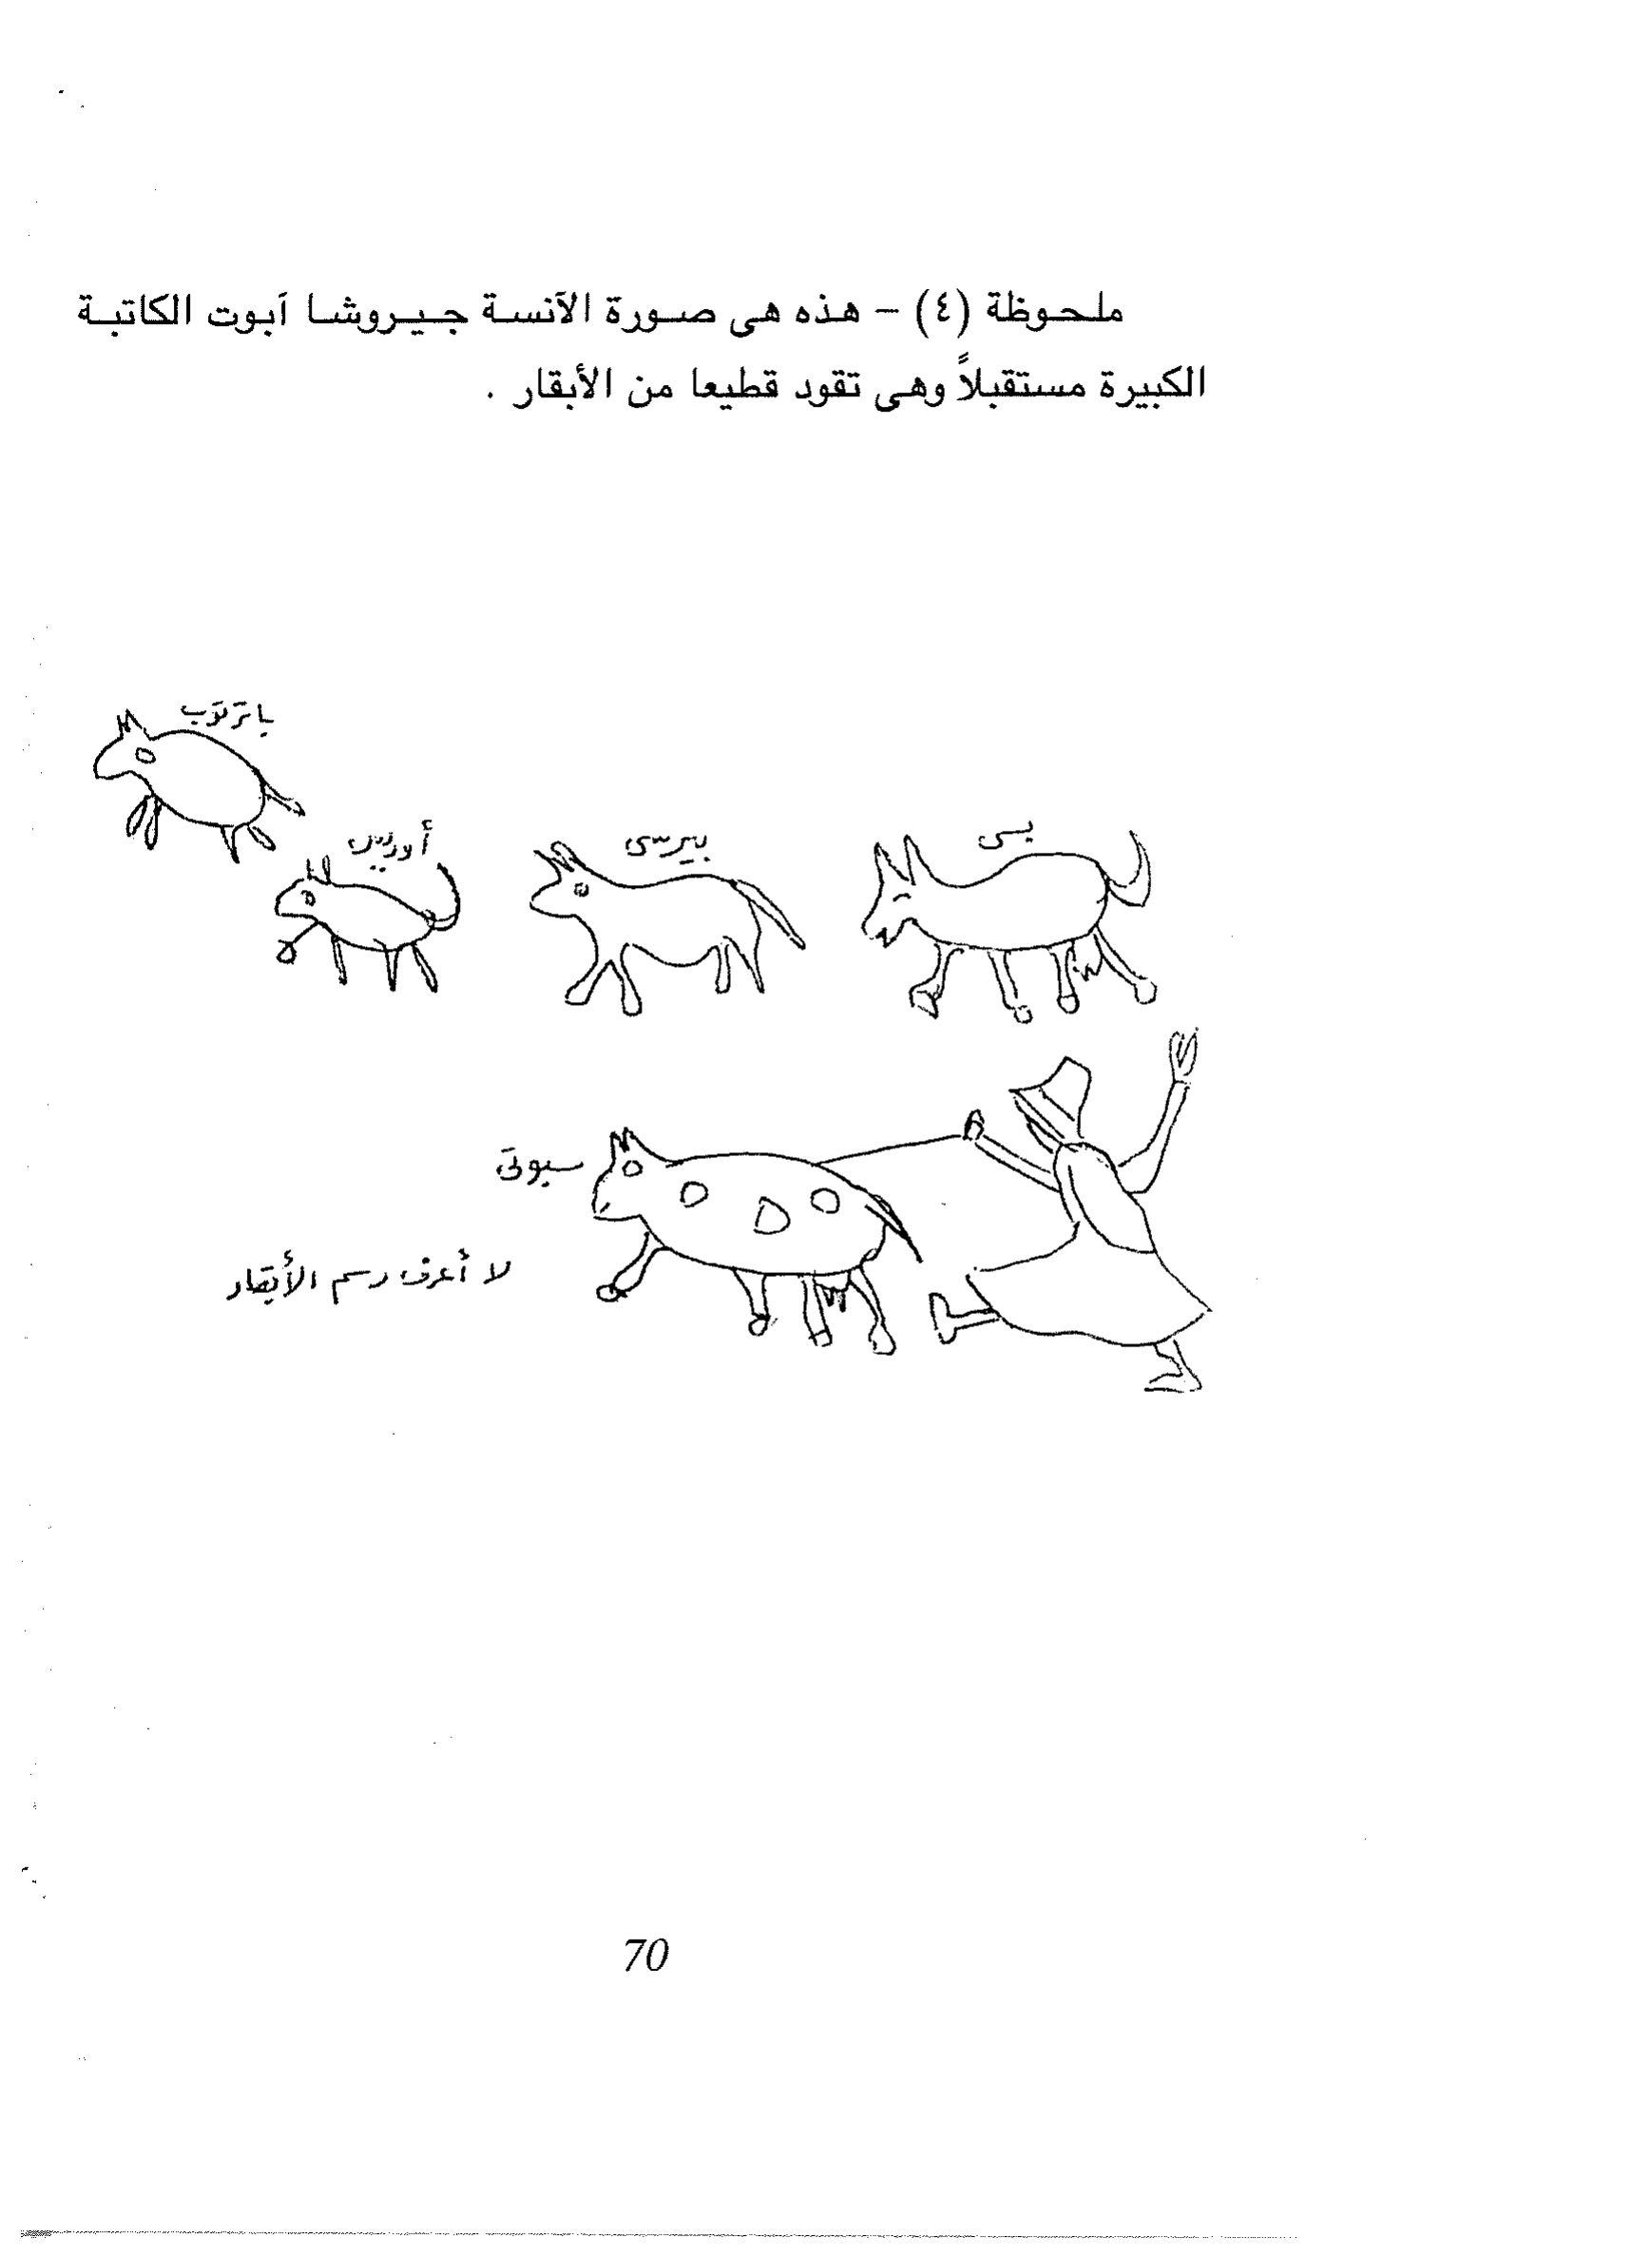 ملحوظة (٤) – هذه هى صورة الآنسة جيروشا آبوت الكاتبة
الكبيرة مستقبلاً وهى تقود قطيعا من الأبقار .
باتركوب
أوريس
بيرسى
بسى
سبوتى
لا أعرف رسم الأبقار
70